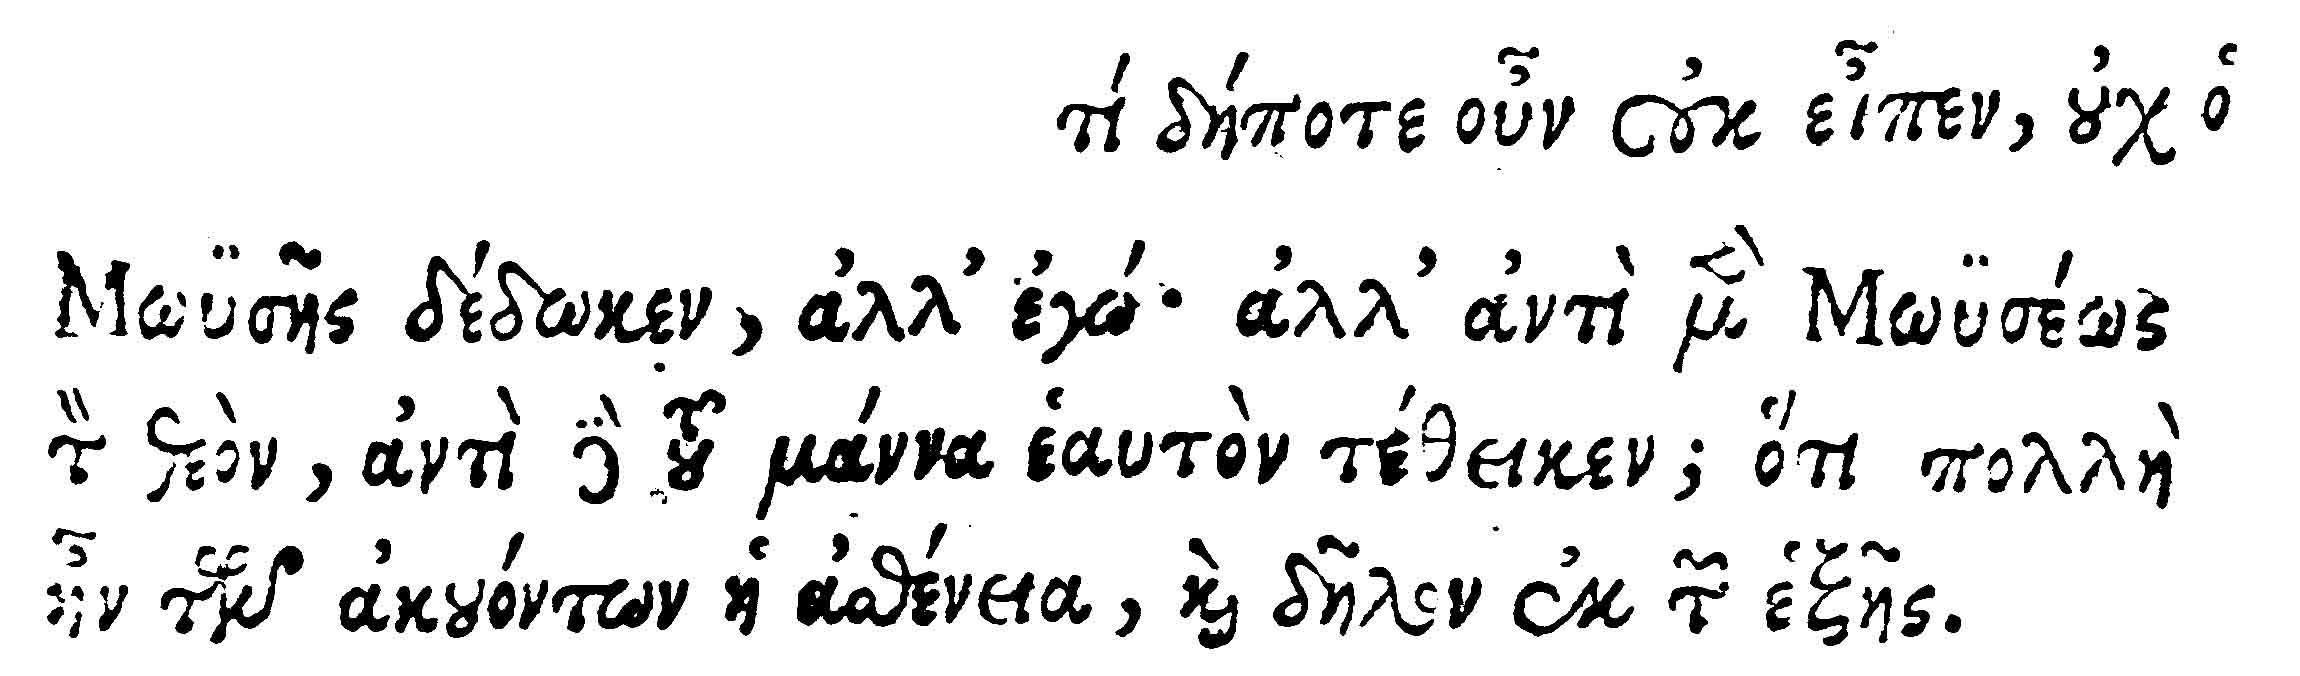 τί δήποτε οὖν οὐκ εἶπεν, οὐχ ὁ
Μωϋσῆς δέδωκεν, ἀλλ’ ἐγώ· ἀλλ’ ἀντὶ μὲν Μωϋσέως
τὸν θεὸν, ἀντὶ δὲ τοῦ μάννα ἑαυτὸν τέθεικεν; ὅτι πολλὴ
ἦν τῶν ἀκουόντων ἡ ἀσθένεια, καὶ δῆλον ἐκ τῶν ἑξῆς.